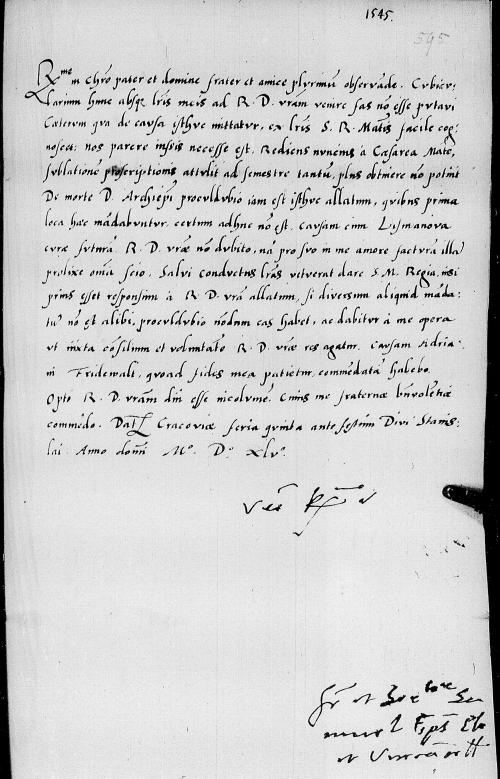 1545.
595
R[me] in Chro pater et domine frater et amice plurimu observade. Cubicu:
larium hunc absq[ue] lris meis ad R. D. vram venire fas no esse putavi
Caeterum qua de causa isthuc mittatur, ex lris S. R. Matis facile cog:
noscet: nos parere ipsis necesse est. Rediens nunctius a Caesarea Mate,
sublatione proscriptionis attulit ad semestre tantu, plus obtinere no potuit
De morte D. Archiepi proculdubio iam est isthuc allatum, quibus prima
loca haec madabuntur certum adhuc no est. Causam cum Lismanova
curae futura R. D. vrae no dubito, na pro suo in me amore factura illa
prolixe omia scio. Salvi conductus lras vetuerat dare S. M. Regia, nisi
prius esset responsum a R. D. vra allatum, si diversum aliquid mada:
tu no est alibi, proculdubio nodum eas habet, ac dabitur a me opera
ut iuxta cosilium et volutate R. D. vrae res agatur. Causam Adria:
ni Fridewalt, quoad fides mea patietur comedata habebo.
Opto R. D. vram diu esse incolume. Cuius me fraternae bnvoletiae
commedo. Dat Cracoviae feria quinta ante festum Divi Stanis:
lai. Anno domi M° D° xlv°